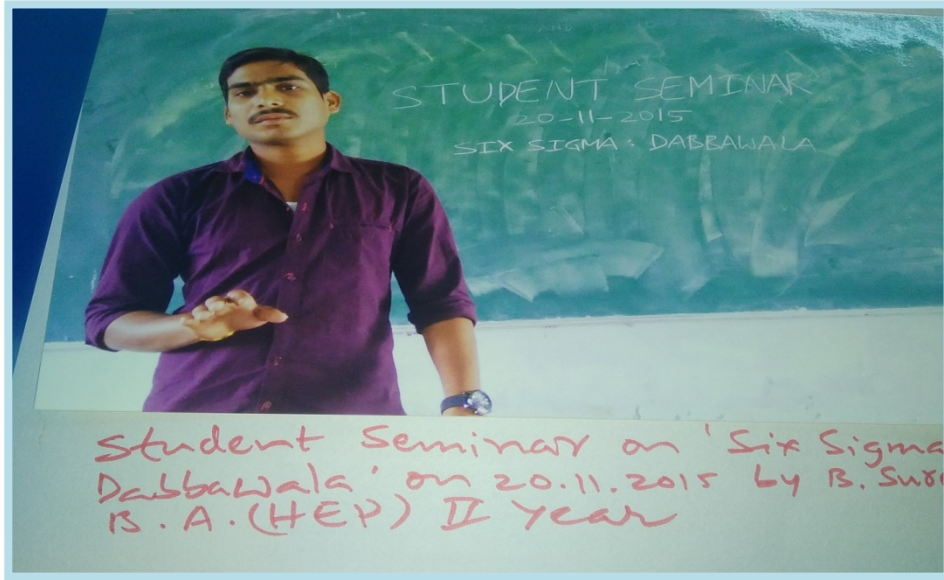 STUDENT SEMINAR
20-11-2015
SIX SIGMA: DABBAWALA
Student Seminar on 'Six Sigma
Dabbawala' on 20.11.2015 by B.
B.A.(HEP) II Year